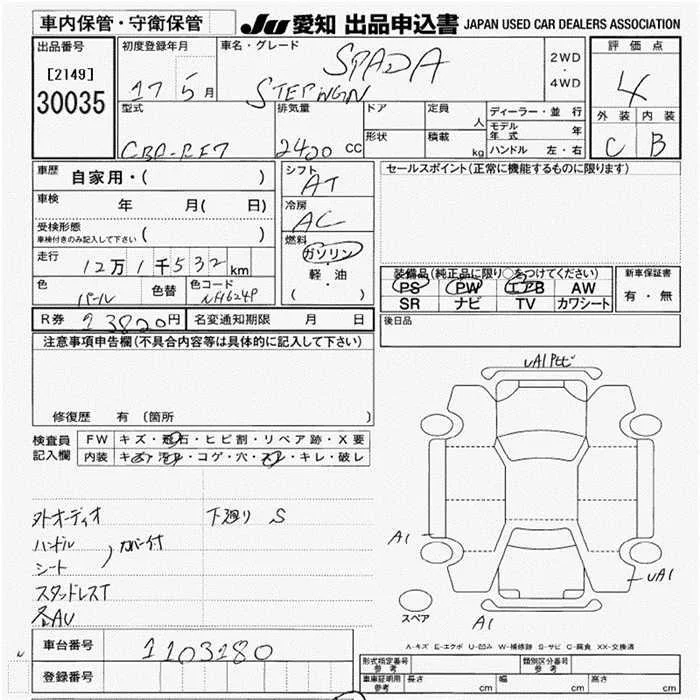 車内保管・守衛保管
JU 愛知 出品申込書 JAPAN USED CAR DEALERS ASSOCIATION
出品番号
[2149]
30035
初度登録年月
17 5月
車名・グレード
SPADA
STEPWGN
2WD
・
4WD
評価点
4
外装 内装
C B
型式
CBA-RF7
排気量
2400 CC
ドア
形状
定員
人
積載
kg
ディーラー・並行
モデル年式 年
ハンドル 左・右
車歴
自家用・( )
車検
年 月( 日)
受検形態
車検付きのみ記入して下さい ( )
走行
12万1千532km
色
パール
色替
色コード
NH624P
シフト
AT
冷房
AC
燃料
ガソリン
・
軽・油
( )
セールスポイント(正常に機能するものに限ります)
装備品(純正品に限り○をつけてください)
PS PW エアB AW
SR ナビ TV カワシート
新車保証書
有・無
R券 13820円
名変通知期限 月 日
後日品
注意事項申告欄(不具合内容等は具体的に記入して下さい)
修復歴 有 (箇所 )
検査員記入欄
FW キズ・飛石・ヒビ割・リペア跡・X要
内装 キズ・汚れ・コゲ・穴・スレ・キレ・破レ
外オーディオ
下廻り S
ハンドル
シート
カバー付
スタッドレスT
各AU
A1
uA1
A1
スペア
A-キズ E-エクボ U-凹み W-補修跡 S-サビ C-腐食 XX-交換済
車台番号
1103180
登録番号
形式指定番号 参考
類別区分番号 参考
車庫証明用 参考
長さ cm
幅 cm
高さ cm